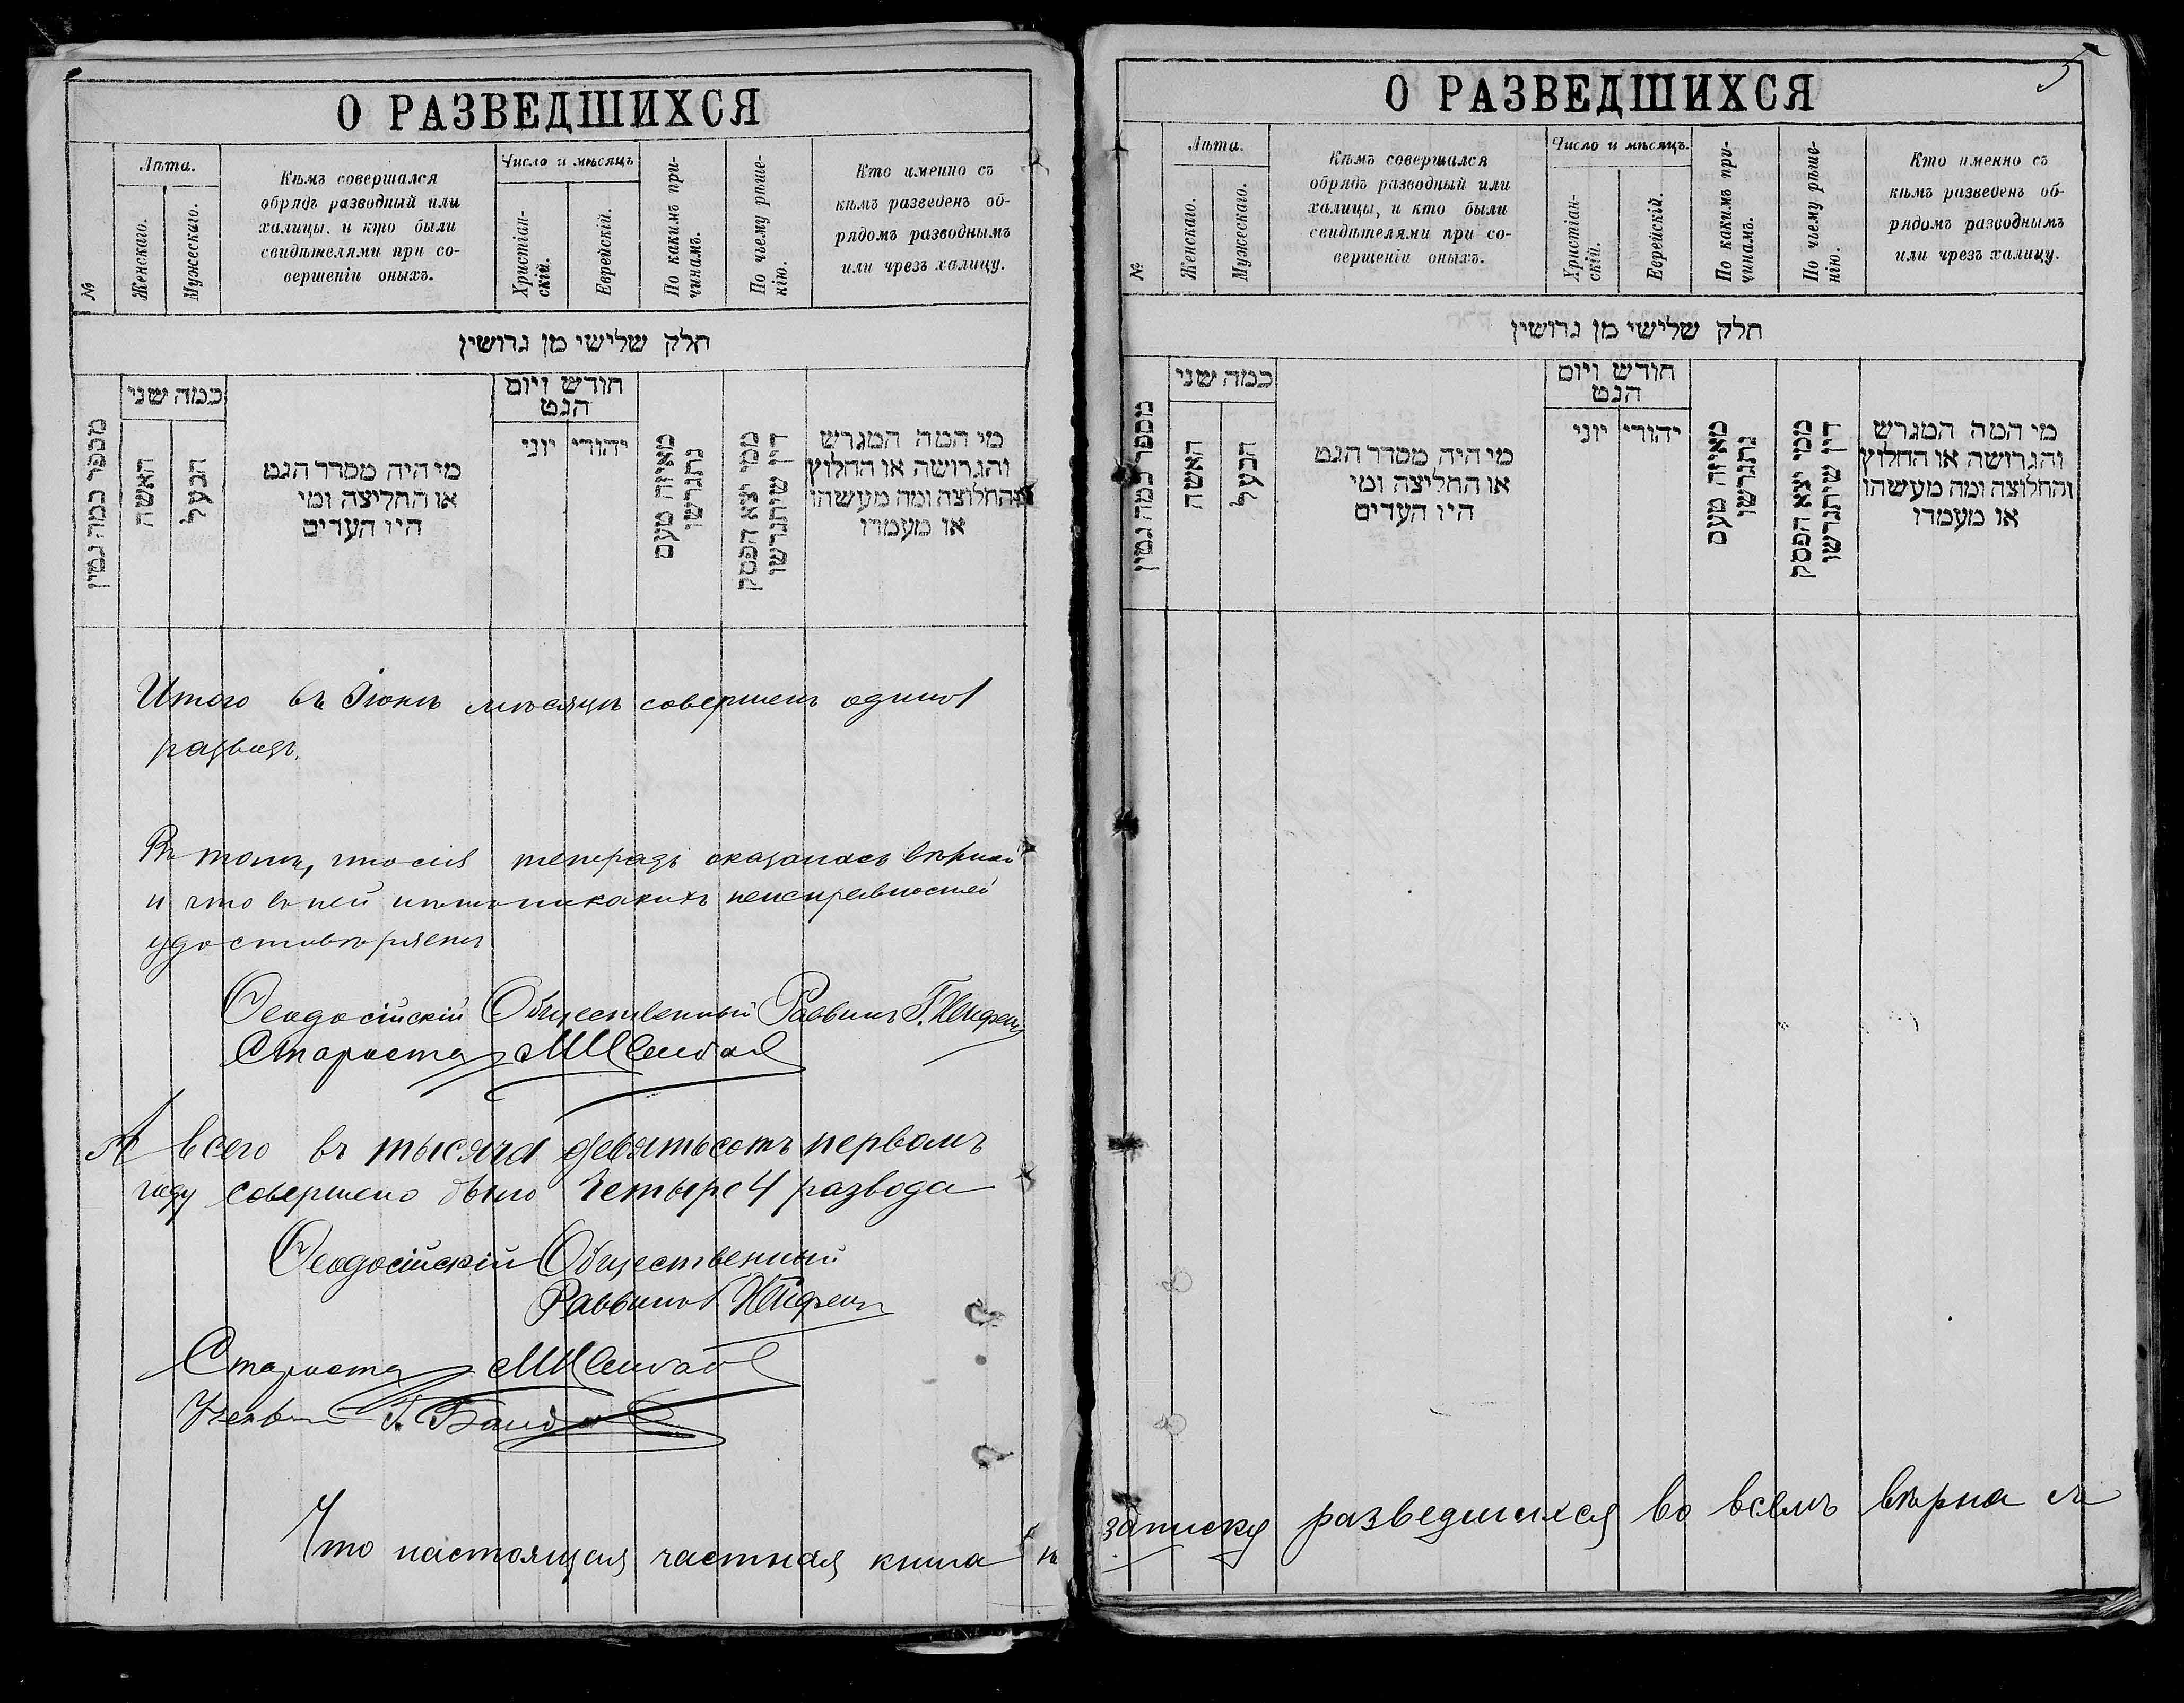 О РАЗВЕДШИХСЯ
№
Лѣта.
Женскаго.
Мужескаго.
Кѣмъ совершался
обрядъ разводный или
халицы, и кто были
свидѣтелями при со-
вершеніи оныхъ.
Число и мѣсяцъ
Христіан-
скій.
Еврейскій.
По какимъ при-
чинамъ.
По чьему рѣше-
нію.
Кто именно съ
кѣмъ разведенъ об-
рядомъ разводнымъ
или чрезъ халицу.
חלק שלישי מן גרושין
מספר כמה גטין
כמה שני
האשה
הבעל
מי היה מסדר הגט
או החליצה ומי
היו העדים
חודש ויום
הגט
יהודי יוני
מאיזה טעם
נתגרשו
ממי יצא הפסק
דין שיתגרשו
מי המה המגרש
והגרושה או החלוץ
והחלוצה ומה מעשהו
או מעמדו
Итого въ Іюнѣ мѣсяцѣ совершенъ одинъ 1
разводъ.
Въ томъ, что сія тетрадь оказалась вѣрной
и что въ ней нѣтъ никакихъ неисправностей
удостовѣряемъ
Ѳеодосійскій Общественный Раввинъ Г.
Староста
А всего въ тысяча девятьсотъ первомъ
году совершено было Четыре 4 развода
Ѳеодосійскій Общественный
Раввинъ Г.
Староста
Г.
Что настоящая частная книга
О РАЗВЕДШИХСЯ
5
№
Лѣта.
Женскаго.
Мужескаго.
Кѣмъ совершался
обрядъ разводный или
халицы, и кто были
свидѣтелями при со-
вершеніи оныхъ.
Число и мѣсяцъ.
Христіан-
скій.
Еврейскій.
По какимъ при-
чинамъ.
По чьему рѣше-
нію.
Кто именно съ
кѣмъ разведенъ об-
рядомъ разводнымъ
или чрезъ халицу.
חלק שלישי מן גרושין
מספר כמה גטין
כמה שני
האשה
הבעל
מי היה מסדר הגט
או החליצה ומי
היו העדים
חודש ויום
הגט
יהודי יוני
מאיזה טעם
נתגרשו
ממי יצא הפסק
דין שיתגרשו
מי המה המגרש
והגרושה או החלוץ
והחלוצה ומה מעשהו
או מעמדו
записку разведшихся во всемъ вѣрна съ